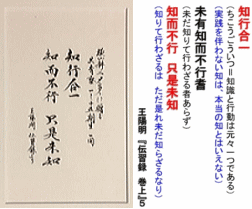 知行合一
(ちこうごういつ＝知識と行動は元々一つである)
(実践を伴わない知は、本当の知とはいえない)
未有知而不行者
(未だ知りて行わざる者あらず)
知而不行 只是未知
(知りて行わざるは ただ是れ未だ知らざるなり)
王陽明『伝習録 巻上』5
知行合一
知而不行 只是未知
王陽明